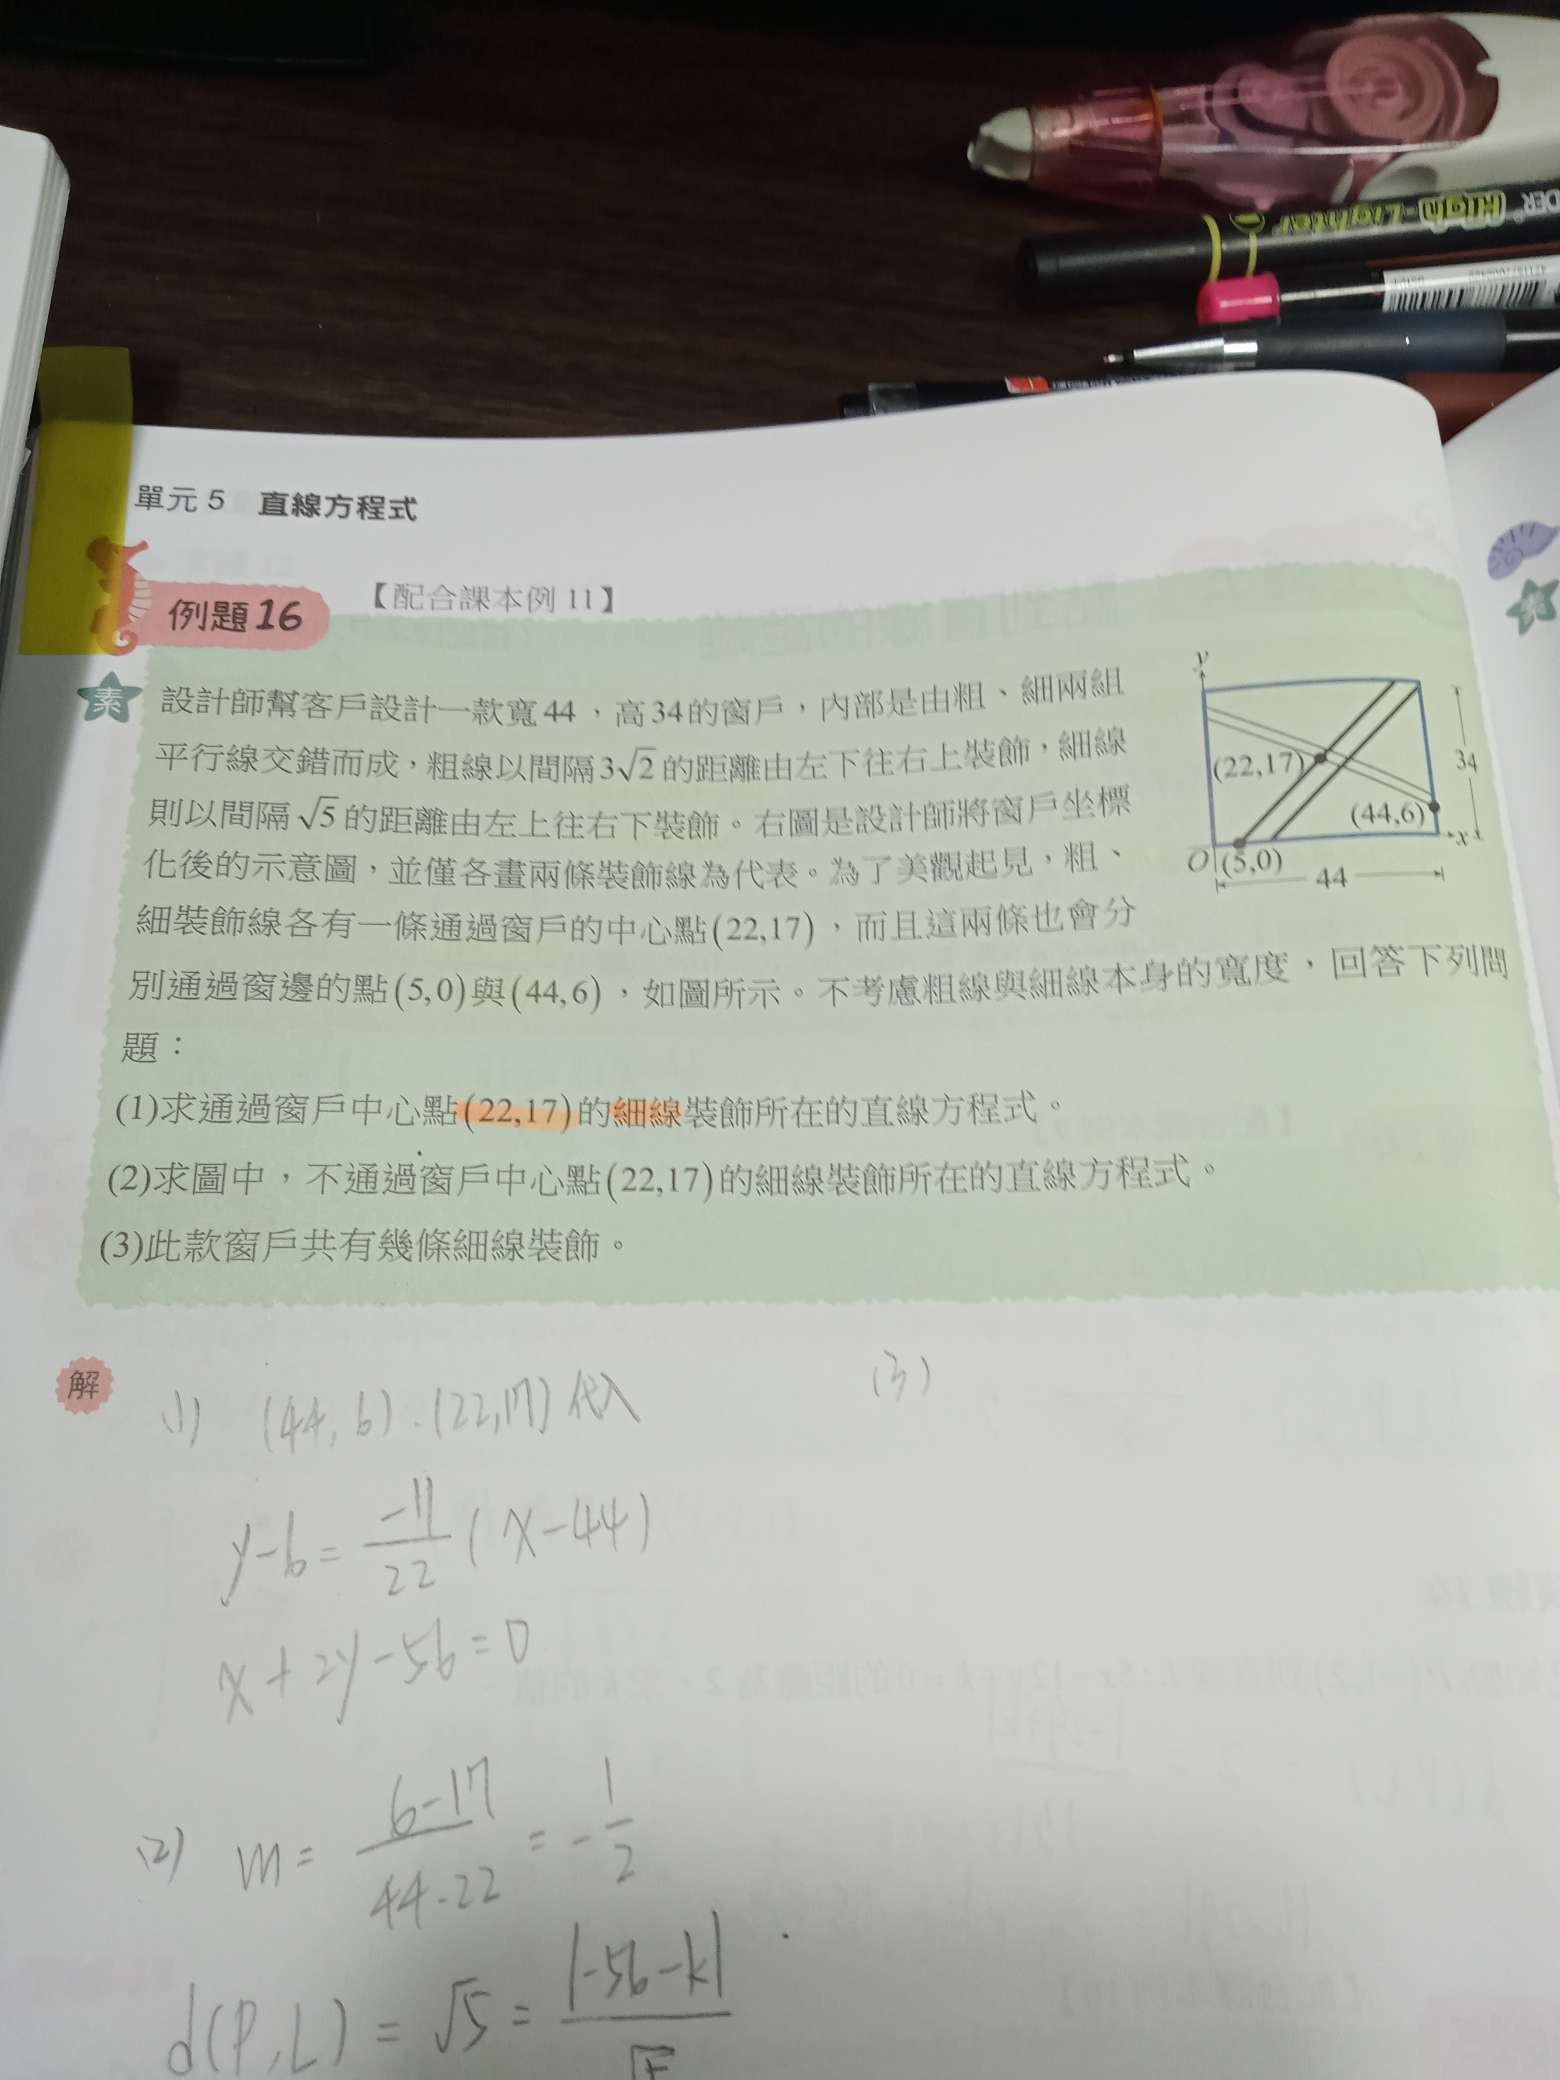 High-Lighter
單元 5 直線方程式
例題16 【配合課本例 11】
素
設計師幫客戶設計一款寬 44，高 34 的窗戶，內部是由粗、細兩組
平行線交錯而成，粗線以間隔 3√2 的距離由左下往右上裝飾，細線
則以間隔 √5 的距離由左上往右下裝飾。右圖是設計師將窗戶坐標
化後的示意圖，並僅各畫兩條裝飾線為代表。為了美觀起見，粗、
細裝飾線各有一條通過窗戶的中心點(22,17)，而且這兩條也會分
別通過窗邊的點(5,0)與(44,6)，如圖所示。不考慮粗線與細線本身的寬度，回答下列問
題：
y
(22,17)
34
(44,6)
x
O (5,0)
44
(1)求通過窗戶中心點(22,17)的細線裝飾所在的直線方程式。
(2)求圖中，不通過窗戶中心點(22,17)的細線裝飾所在的直線方程式。
(3)此款窗戶共有幾條細線裝飾。
解
(1) (44,6)．(22,17)代入
y-6=-11/22(x-44)
x+2y-56=0
(2) m=6-17/44-22=-1/2
d(P,L)=√5=|-56-k|/
(3)